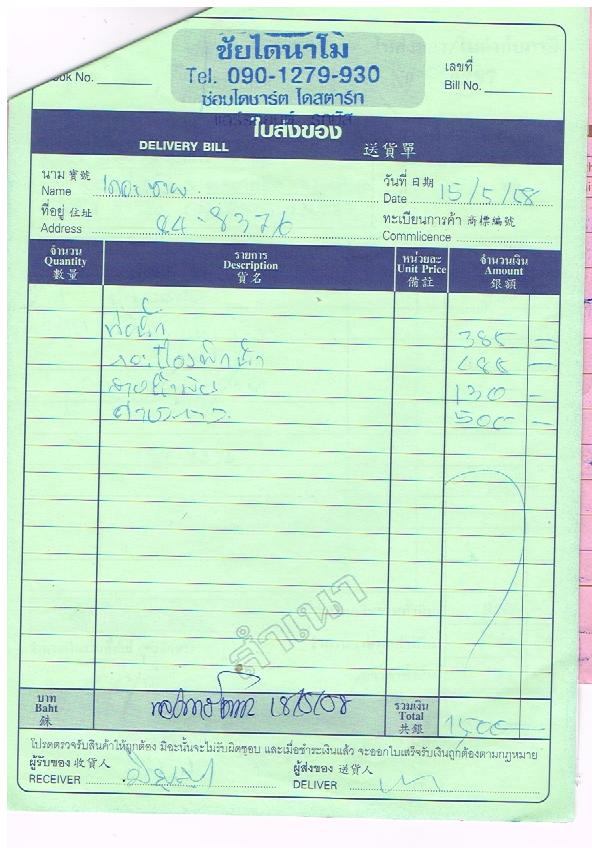 ชัยไดนาโม
Tel. 090-1279-930
ซ่อมไดชาร์ต ไดสตาร์ท
ook No.
เลขที่
Bill No.
ใบส่งของ
DELIVERY BILL
送貨單
นาม 寶號
Name
วันที่ 日期
Date 15/5/58
ที่อยู่ 住址
Address 84-8376
ทะเบียนการค้า 商標編號
Commlicence
จำนวน
Quantity
數量
รายการ
Description
貨名
หน่วยละ
Unit Price
備註
จำนวนเงิน
Amount
銀額
ท่อน้ำ 385 –
กระป๋องพักน้ำ 485 –
130 –
ค่าแรง 500 –
สำเนา
บาท
Baht
銖
18/5/58
รวมเงิน
Total
共銀
1500
โปรดตรวจรับสินค้าให้ถูกต้อง มิฉะนั้นจะไม่รับผิดชอบ และเมื่อชำระเงินแล้ว จะออกใบเสร็จรับเงินถูกต้องตามกฎหมาย
ผู้รับของ 收貨人
RECEIVER
ผู้ส่งของ 送貨人
DELIVER